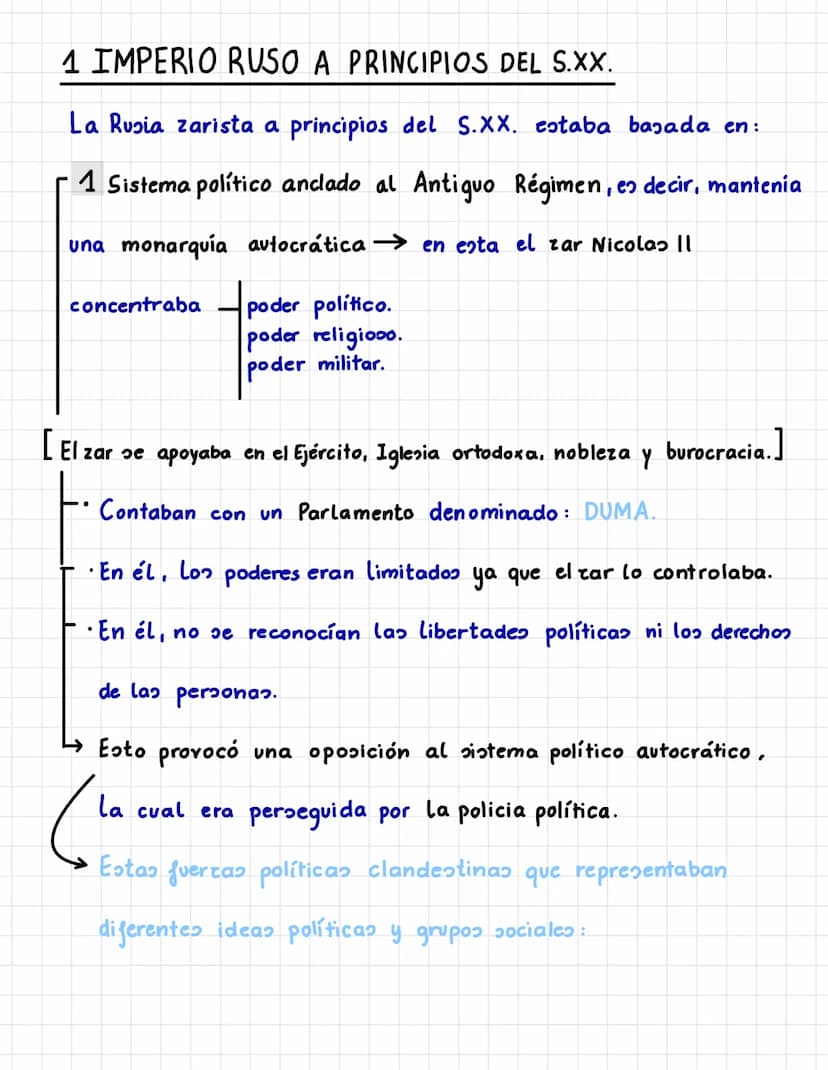 1 IMPERIO RUSO A PRINCIPIOS DEL S.XX.
La Rusia zarista a principios del S.XX. estaba basada en:
1 Sistema político anclado al Antiguo Régimen, es decir, mantenía
una monarquía autocrática → en esta el zar Nicolas II
concentraba
poder político.
poder religioso.
poder militar.
[El zar se apoyaba en el Ejército, Iglesia ortodoxa, nobleza y burocracia.]
· Contaban con un Parlamento denominado: DUMA.
· En él, los poderes eran limitados ya que el zar lo controlaba.
· En él, no se reconocían las libertades políticas ni los derechos
de las personas.
↳ Esto provocó una oposición al sistema político autocrático,
la cual era perseguida por la policia política.
Estas fuerzas políticas clandestinas que representaban
diferentes ideas políticas y grupos sociales: